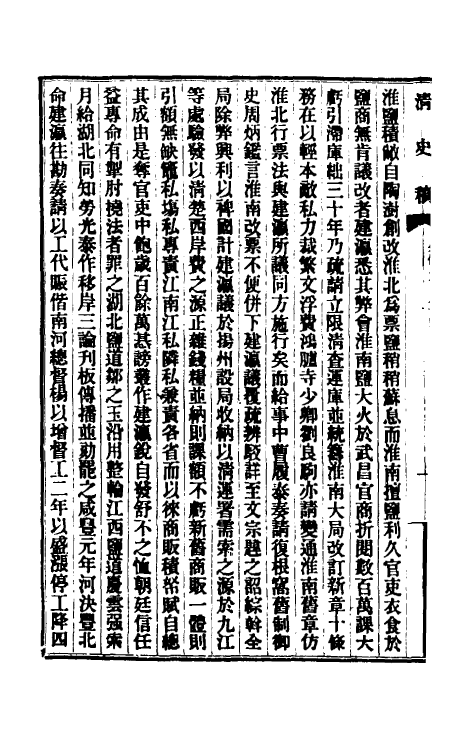 清史稿
淮鹽積敝自陶澍創改淮北為票鹽稍稍蘇息而淮南擅鹽利久官吏衣食於
鹽商無肯議改者建瀛悉其弊會淮南鹽大火於武昌官商折閱數百萬課大
虧引滯庫絀三十年乃疏請立限清查運庫並統籌淮南大局改訂新章十條
務在以輕本敵私力裁繁文浮費鴻臚寺少卿劉良駒亦請變通淮南舊章仿
淮北行票法與建瀛所議同方施行矣而給事中曹履泰奏請復根窩舊制御
史周炳鑑言淮南改票不便併下建瀛議覆疏辨駁詳至文宗韙之詔綜幹全
局除弊興利以裨國計建瀛議於揚州設局收納以清運署需索之源於九江
等處驗發以清楚西岸費之源正雜錢糧並納則課額不虧新舊商販一體則
引額無缺竈私場私專責江南江私隣私兼責各省而以徠商販積帑賦自總
其成由是奪官吏中飽歲百餘萬甚謗叢作建瀛銳自發舒不之恤朝廷信任
益專命有掣肘撓法者罪之湖北鹽道鄒之玉沿用整輪江西鹽道慶雲强索
月給湖北同知勞光泰作移岸三論刋板傳播並劾罷之咸豐元年河決豐北
命建瀛往勘奏請以工代賑偕南河總督楊以增督工二年以盛漲停工降四